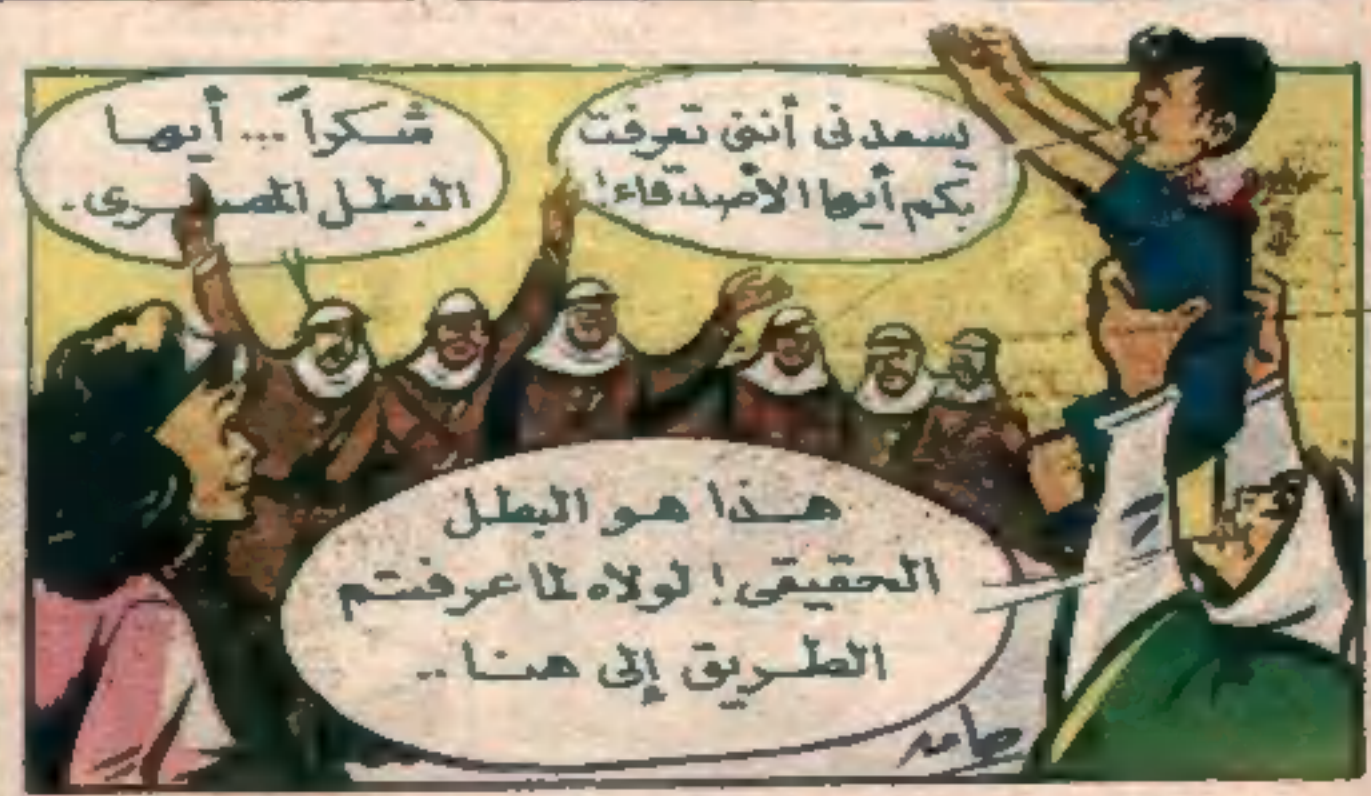 يسعدنى أننى تعرفت
بكم أيها الأصدقاء!
شكراً ... أيها
البطل المصرى.
هذا هو البطل
الحقيقى! لولاه لما عرفتم
الطريق إلى هنا ..